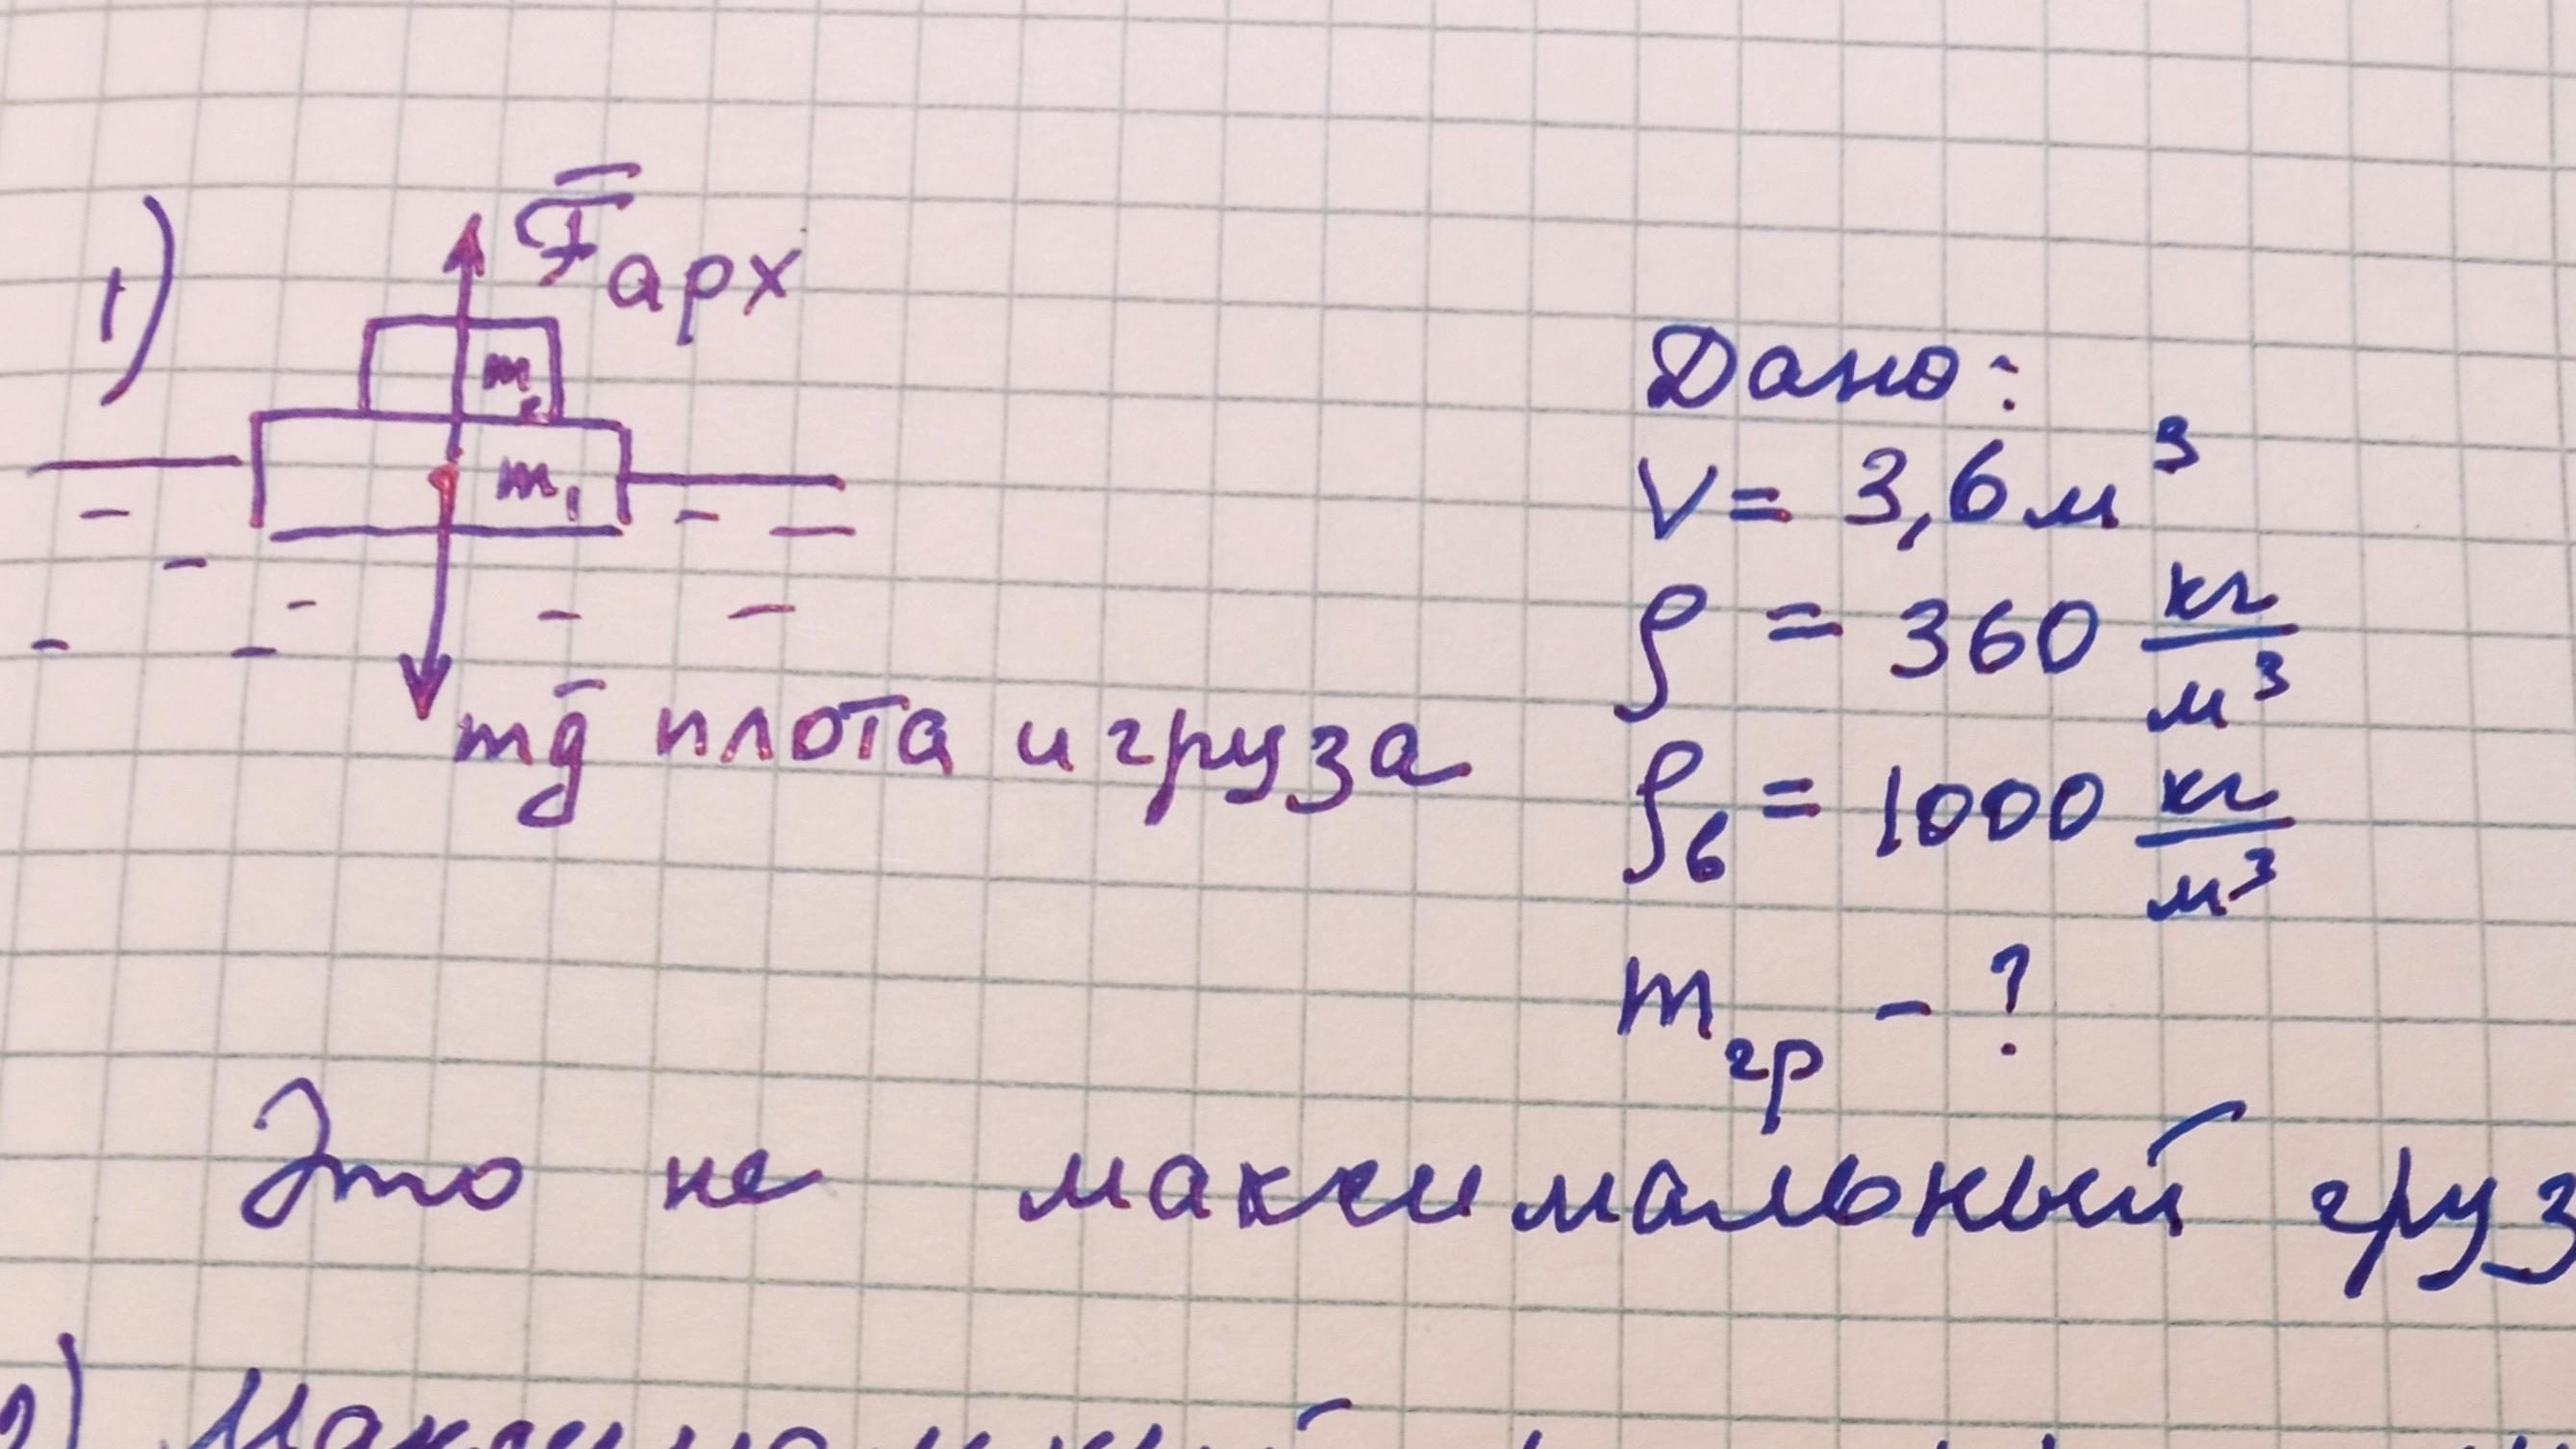 1)
F̅арх
m₂
m₁
mg̅ плота и груза
Дано:
V = 3,6 м³
ρ = 360 кг/м³
ρв = 1000 кг/м³
mгр - ?
Это не максимальный груз
2) Максимальный